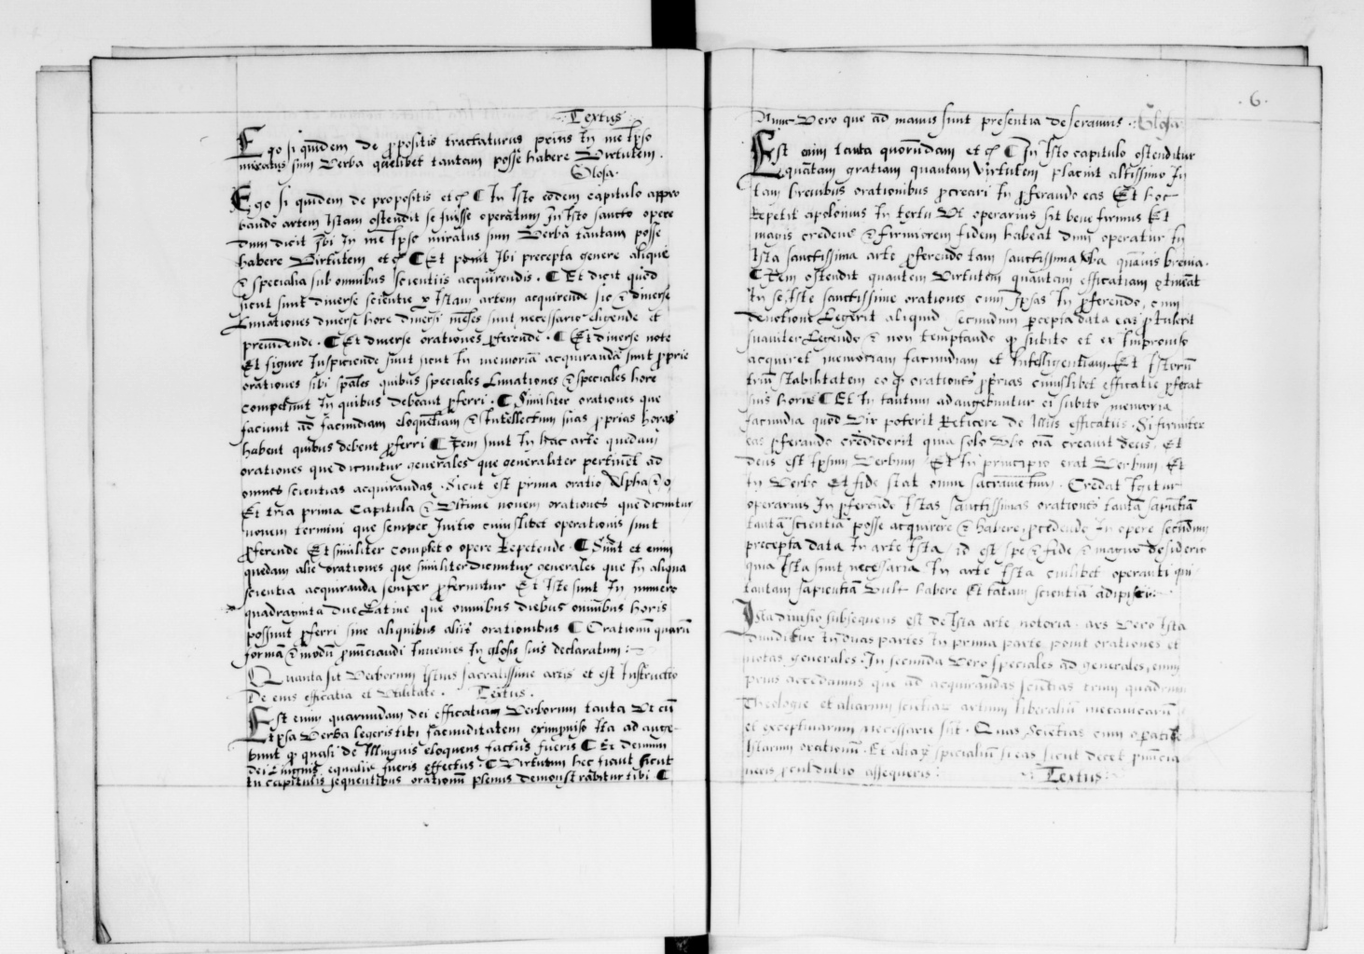 Textus.
Ego si quidem de propositis tractaturus prius In me Ipso
miratus sum Verba quelibet tantam posse habere Virtutem.
Glosa.
Ego si quidem de propositis etc ¶ In Isto eodem capitulo appro
bando artem Istam ostendit se fuisse operatum In Isto sancto opere
dum dicit Ibi In me Ipso miratus sum Verba tantam posse
habere Virtutem etc ¶ Et ponit Ibi precepta genere aliqua
& specialia sub omnibus scientiis acquirendis. ¶ Et dicit quod
sicut sunt diverse scientie per Istam artem acquirende sic & diverse
Lunationes diverse hore diversi menses sunt necessario eligende et
previdende. ¶ Et diverse orationes proferende. ¶ Et diverse note
Et figure Inspiciende sunt sicut In memoria acquiranda sunt proprie
orationes sibi speciales quibus speciales Lunationes & speciales hore
competunt In quibus debeant proferri. ¶ Similiter orationes que
faciunt ad facundiam eloquentiam & Intellectum suas proprias horas
habent quibus debent proferri ¶ Item sunt In hac arte quedam
orationes que dicuntur generales que generaliter pertinent ad
omnes scientias acquirandas. Sicut est prima oratio Alpha & o
Et tria prima Capitula & Ultime novem orationes que dicuntur
novem termini que semper Initio cuius libet operationis sunt
proferende Et similiter completo opere Repetende. ¶ Sunt et enim
quedam alie orationes que similiter dicuntur generales que In aliqua
scientia acquiranda semper proferuntur Et Iste sunt In numero
quadraginta due Latine que omnibus diebus omnibus horis
possunt proferri sine aliquibus aliis orationibus ¶ Orationum quarum
formam & modum pronunciandi Invenies In glosis suis declaratum:
Quanta sit Verborum Istius sacratissime artis et est Instructio
de eius efficatia et Utilitate. Textus.
Est enim quarumdam dei efficatiam Verborum tanta Ut cum
Ipsa Verba legeris tibi facunditatem eximproviso Ita ad auge-
bunt quod quasi de Illinguis eloquens factus fueris ¶ Et demum
Virtutum hec sicut
In capitulis sequentibus orationum plenius demonstrabitur tibi ¶
.6.
Nunc Vero que ad maius sunt presentia deseramus. Glosa
Est enim tanta quorundam etc ¶ In Isto capitulo ostenditur
quantam gratiam quantam Virtutem placuit altissimo In
tam brevibus orationibus procreari In proferando eas Et hoc
Repetit apolonius In textu Ut operarius sit bene firmus Et
magis credens & firmiorem fidem habeat dum operatur In
Ista sanctissima arte proferendo tam sanctissima Verba quamvis brevia.
¶ Item ostendit quantam Virtutem quantam efficatiam contineant
In se Iste sanctissime orationes cum Ipsas In proferendo, cum
devotione Legerit aliquid secundum precepta data eas protulerit
suaviter Legendo & non temptando quod subito et ex Improviso
acquiret memoriam facundiam et Intelligentiam. Et Istorum
trium stabilitatem eo quod orationes proprias cuiuslibet efficatie proferat
suis horis ¶ Et In tantum adaugebuntur ei subito memoria
facundia quod Vir poterit Reticere de Illius efficatiis. Si firmiter
eas proferando crediderit quia solo Verbo omnia creavit deus. Et
deus est Ipsum Verbum Et In principio erat Verbum. Et
In Verbo Et fide stat omne sacramentum. Credat Igitur
operarius In proferendo Istas sanctissimas orationes tantam sapientiam
tantam scientiam posse acquirere & habere, procedendo In opere secundum
precepta data In arte Ista, id est spe & fide & magno desiderio
quia Ista sunt necessaria In arte Ista cuilibet operanti qui
tantam sapientiam Vult habere Et tantam scientiam adipisci:
Ista divisio subsequens est de Ista arte notoria. Ars Vero Ista
dividitur In duas partes In prima parte ponit orationes et
notas generales. In secunda Vero speciales ad generales, enim
prius accedamus que ad acquirandas scientias trivii quadrivii
Theologie et aliarum scientiarum artium liberalium mecanicarum
et exceptivarum necessarie sunt. Quas scientias cum operatione
Istarum orationum. Et aliarum specialium si eas sicut decet pronuncia
veris procul dubio assequeris: Textus: